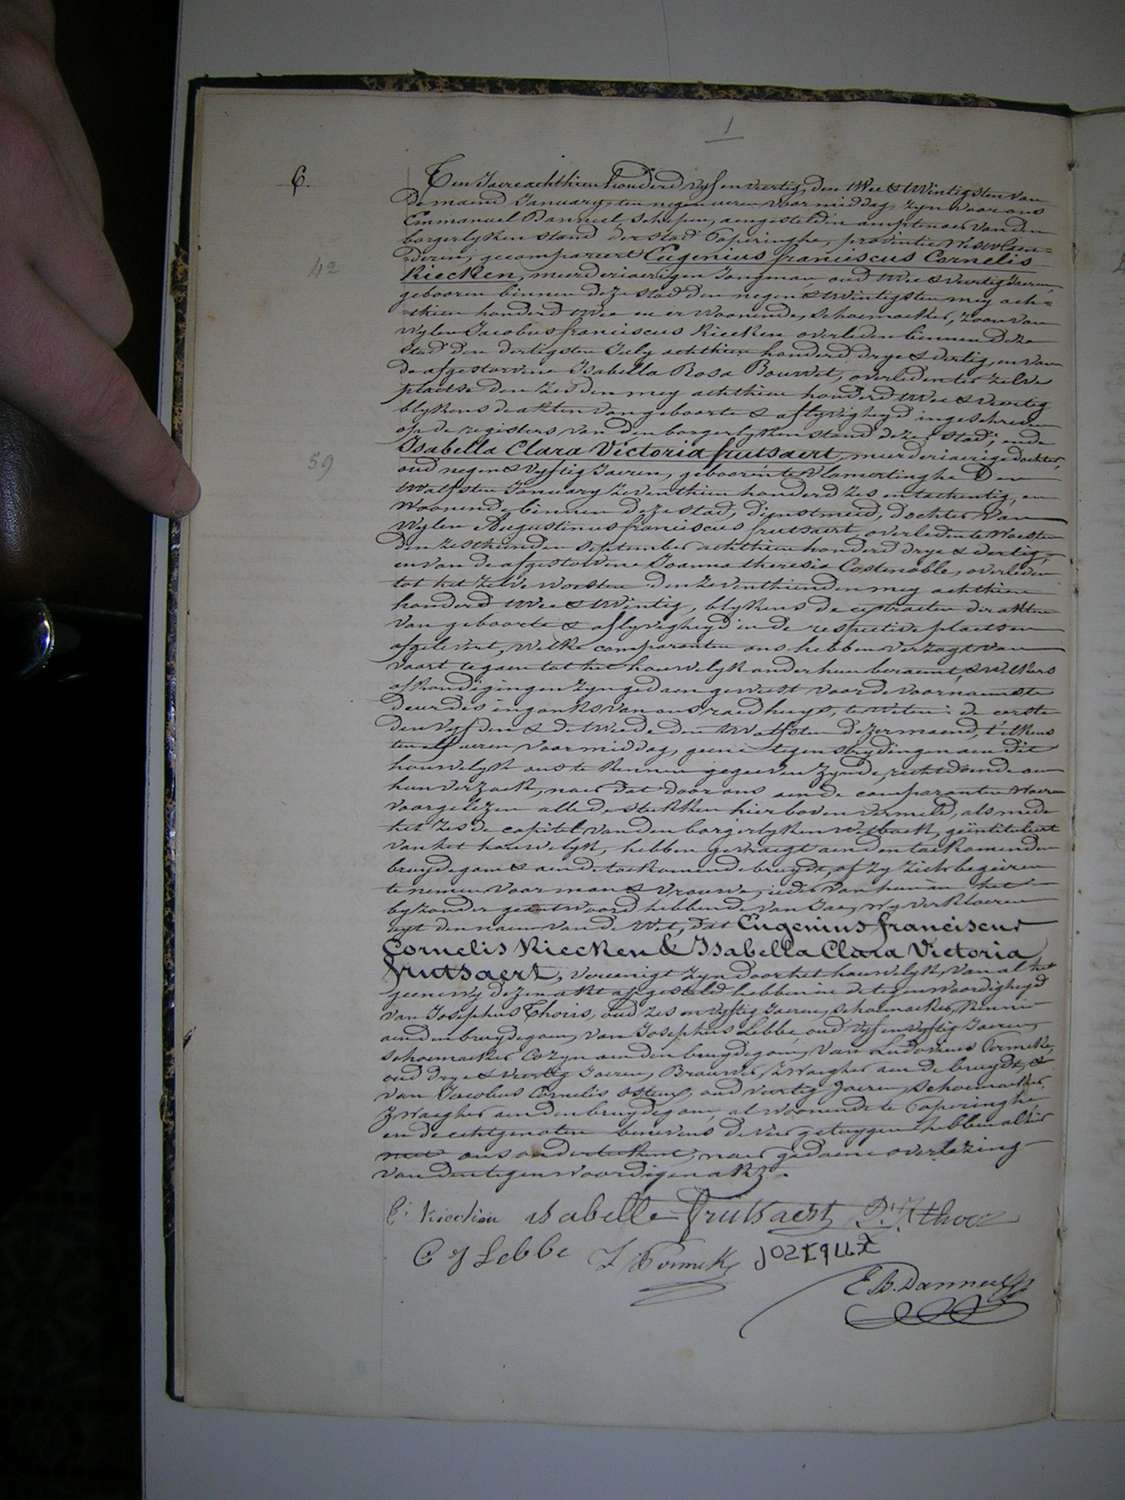 1
6.
Ten Jaere achthien honderd vyf en veertig, den twee & twintigsten van
de maend January, ten negen ueren voormiddag, zyn voor ons
Emmanuel Danneel, schepen, aengesteld in amptenaer van den
borgerlyken stand der stad Poperinghe, provintie Westvlaen-
deren, gecompareert Eugenius franciscus Cornelis
42
Kiecken, meerderjaerigen Jongman, oud twee & veertig Jaeren,
gebooren binnen deze stad den negen & twintigsten mey ach-
thien honderd twee en er woonende, schoemaeker, zoon van
wylen Jacobus franciscus Kiecken overleden binnen deze
stad den dertigsten July achthien honderd drye & dertig, en van
de afgestorvene Isabella Rosa Bouvet, overleden ter zelve
plaetse den zesden mey achthien honderd twee & veertig
blykens de akten van geboorte & aflyvigheyd ingeschreven
op de registers van den borgerlyken stand dezer stad; ende
Isabella Clara Victoria frutsaert, meerderjaerige dochter,
59
oud negen & vyftig Jaeren, gebooren te Vlamertinghe den
twalfsten January zeventhien honderd zes en tachentig, en
woonende binnen deze stad, dienstmeid, dochter van
wylen Augustinus franciscus frutsaert overleden te Woesten
den zesthienden september achthien honderd drye & dertig,
en van de afgestorvene Joanna theresia Costenoble, overleden
tot het zelve Woesten den zeventhienden mey achthien
honderd twee & twintig, blykens de extracten der akten
van geboorte & aflyvigheyd in de respective plaetsen
afgelevert, welke comparanten ons hebben verzogt van
voort te gaen tot het houwelyk onder hun beraemt, & welkers
afkondigingen zyn gedaen geweest voor de voornaemste
deur des ingangs van ons raedhuys, te weten: de eerste
den vyfden & de tweede den twalfsten dezer maend, telkens
ten elf ueren voormiddag, geene tegenstrydingen aen dit
houwelyk ons te kennen gegeven zynde, rechtdoende aen
hun verzoek, naer dat door ons aen de comparanten waeren
voorgelezen alle de stukken hier boven vermeld, als mede
het zesde capitel van den borgerlyken wetboek, geintituleert
van het houwelyk, hebben gevraegt aen den toekomenden
bruydegom & aen de toekomende bruyd, of zy zich begeiren
te nemen voor man & vrouwe, ieder van hun aen het
byzonder geantwoord hebbende van Jae, wy verklaeren
uyt den naem van de wet, dat Eugenius franciscus
Cornelis Kiecken & Isabella Clara Victoria
frutsaert, vereenigt zyn door het houwelyk, van al het
geene wy dezen akt opgesteld hebben in de tegenwoordigheyd
van Josephus Thoris, oud zes en vyftig Jaeren, schoemaeker, kennis
aen den bruydegom, van Josephus Lebbe, oud vyf en vyftig Jaeren,
schoemaeker Cozyn aen den bruydegom, van Ludovicus Vermeke,
oud drye & veertig Jaeren, Brouwer, zwaegher aen de bruydt, &
van Jacobus Cornelis osteux, oud veertig Jaeren, schoemaeker,
zwaegher aen den bruydegom, al woonende te Poperinghe,
en de echtgenoten benevens de vier getuygen hebben alhier
met ons onderteekent, naer gedaene overlezing
van den tegenwoordigen akt.
E: kiecken isabelle frutsaert
C J Lebbe
E B. Danneel